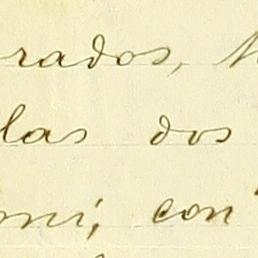 rados,
las dos
oni; con